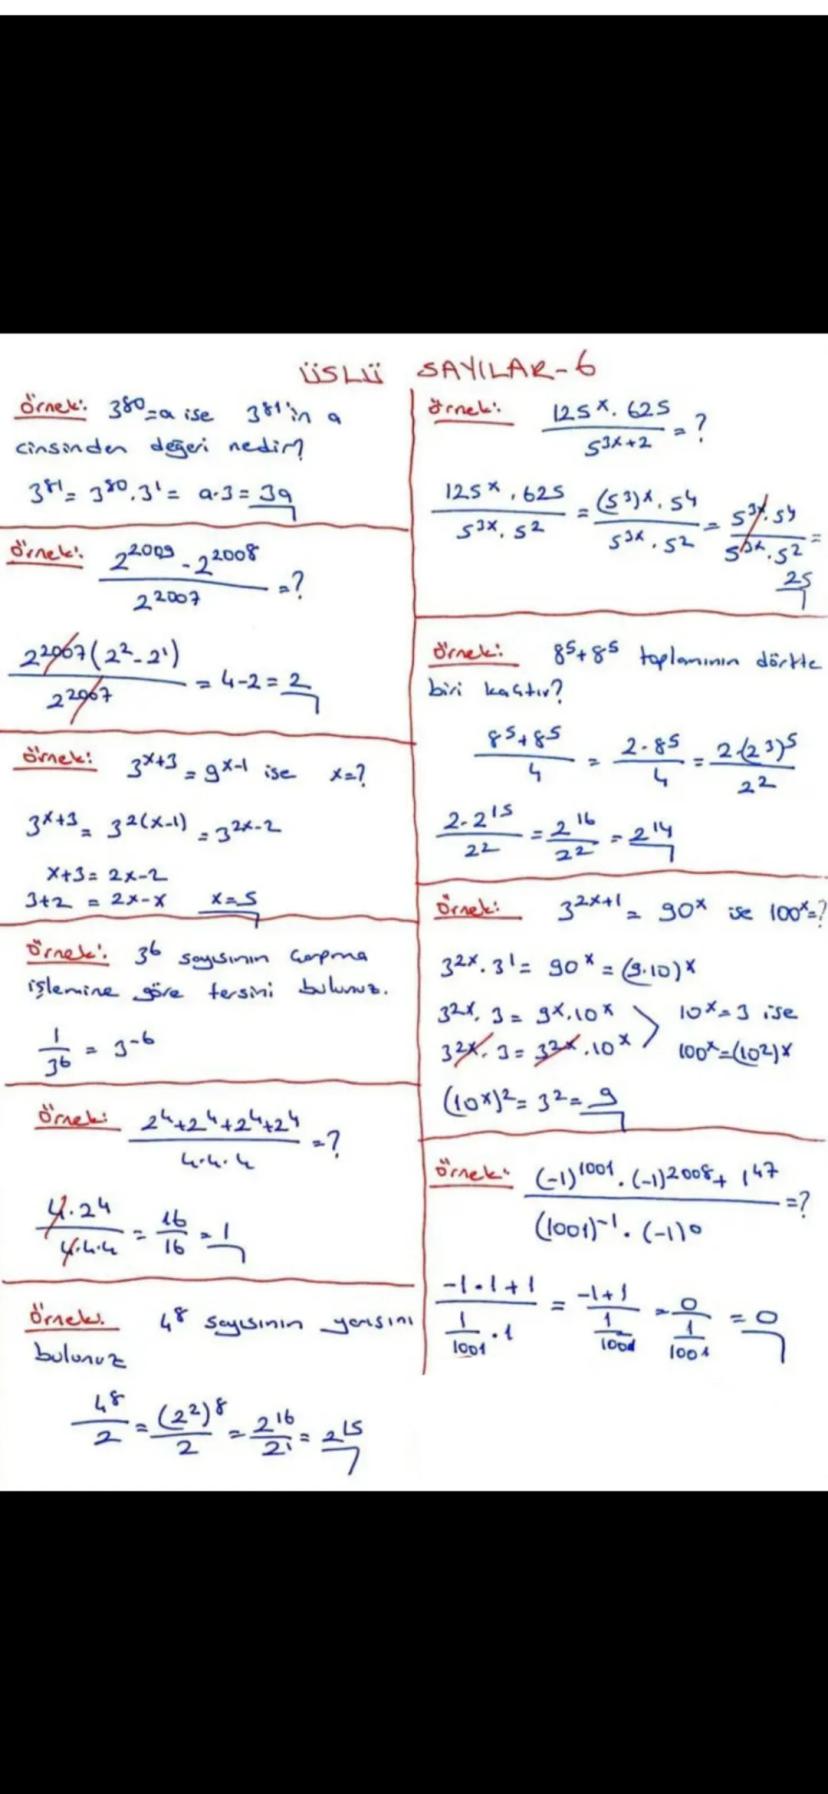 ÜSLÜ SAYILAR-6
Örnek: 3^80=a ise 3^81'in a
cinsinden değeri nedir?
3^81 = 3^80.3^1 = a.3 = 3a
Örnek: (2^2009 - 2^2008) / 2^2007 = ?
2^2007(2^2-2^1) / 2^2007 = 4-2 = 2
Örnek: 3^(x+3) = 9^(x-1) ise x=?
3^(x+3) = 3^(2(x-1)) = 3^(2x-2)
x+3 = 2x-2
3+2 = 2x-x x=5
Örnek: 3^6 sayısının çarpma
işlemine göre tersini bulunuz.
1/3^6 = 3^-6
Örnek: (2^4+2^4+2^4+2^4) / (4.4.4) = ?
4.2^4 / 4.4.4 = 16/16 = 1
Örnek. 4^8 sayısının yarısını
bulunuz
4^8/2 = (2^2)^8/2 = 2^16/2^1 = 2^15
Örnek: (125^x . 625) / 5^(3x+2) = ?
(125^x . 625) / (5^3x . 5^2) = ((5^3)^x . 5^4) / (5^3x . 5^2) = (5^3x . 5^4) / (5^3x . 5^2) =
25
Örnek: 8^5+8^5 toplamının dörtte
biri kaçtır?
(8^5+8^5)/4 = 2.8^5/4 = 2.(2^3)^5/2^2
2.2^15/2^2 = 2^16/2^2 = 2^14
Örnek: 3^(2x+1) = 90^x ise 100^x=?
3^2x . 3^1 = 90^x = (9.10)^x
3^2x . 3 = 9^x.10^x 10^x=3 ise
3^2x . 3 = 3^2x .10^x 100^x=(10^2)^x
(10^x)^2 = 3^2 = 9
Örnek: ((-1)^1001 . (-1)^2008 + 1^47) / ((1001)^-1 . (-1)^0) = ?
(-1.1+1) / (1/1001 . 1) = (-1+1) / (1/1001) = 0 / (1/1001) = 0